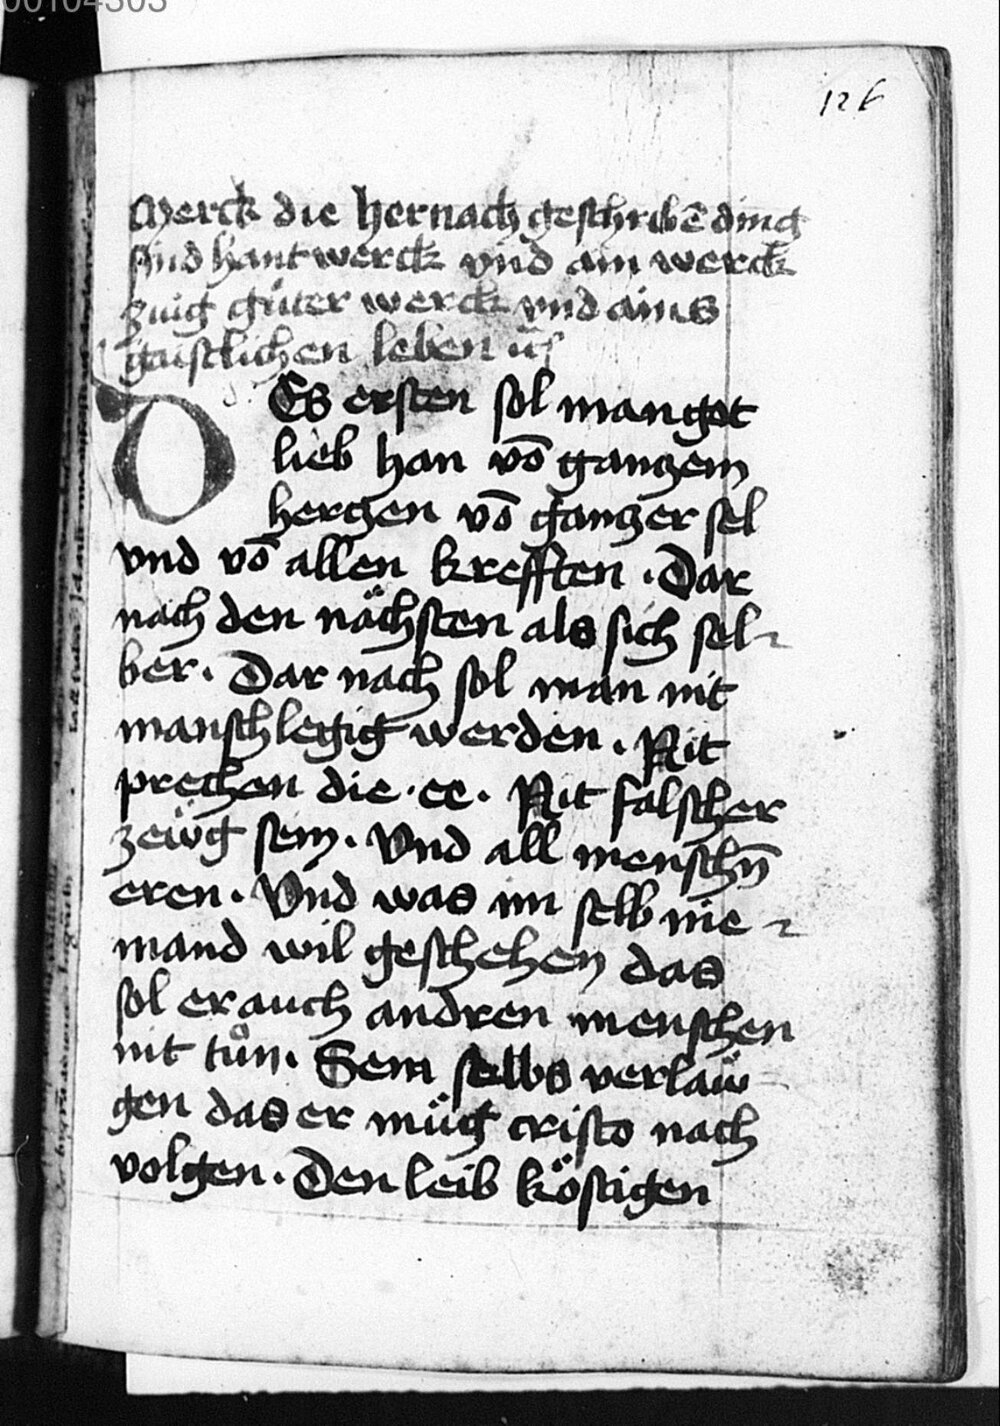 00104303
126
Merck die hernach geschribē ding
sind hantwerck vnd ain werck
züig gůter werck vnd ains
gaistlichen leben
DEs ersten sol man got
lieb han vō ganczem
herczen vō ganczer sel
vnd vō allen krefften . Dar
nach den nächsten als sich sel-
ber . Dar nach sol man nit
manschlegig werden . Nit
prechen die . ee . Nit falscher
zeüg sein . Vnd all menschn̄
eren . Vnd was im selb nie-
mand wil geschehen das
sol er auch andren menschen
nit tůn . Sein selbs verlaw̋-
gen das er müg cristo nach
volgen . Den leib köstigen